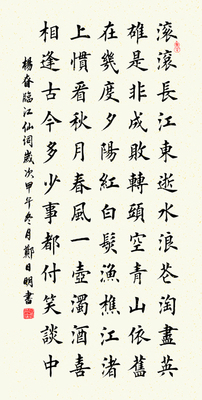 滾滾長江東逝水浪花淘盡英
雄是非成敗轉頭空青山依舊
在幾度夕陽紅白髮漁樵江渚
上慣看秋月春風一壺濁酒喜
相逢古今多少事都付笑談中
楊眘臨江仙词歲次甲午冬月鄭日明書